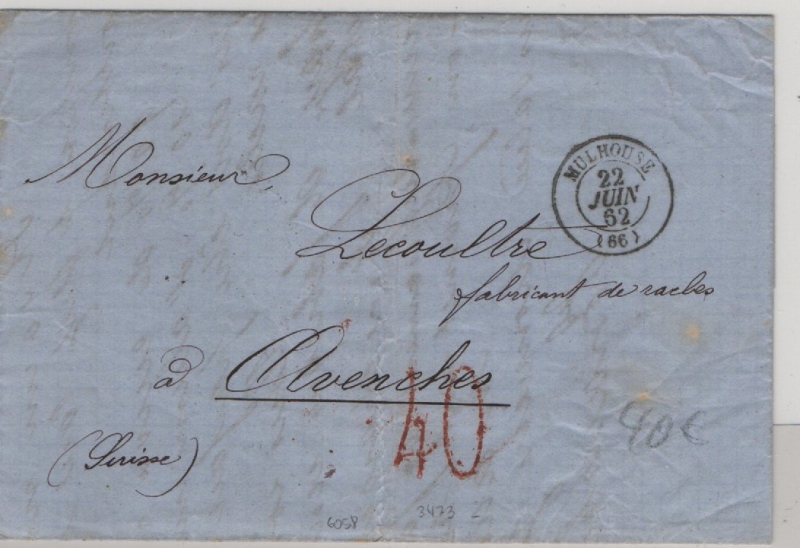 MULHOUSE
22
JUIN
62
(66)
Monsieur,
Lecoultre
fabricant de racles
à Avenches
(Suisse)
40
40€
6058
3473